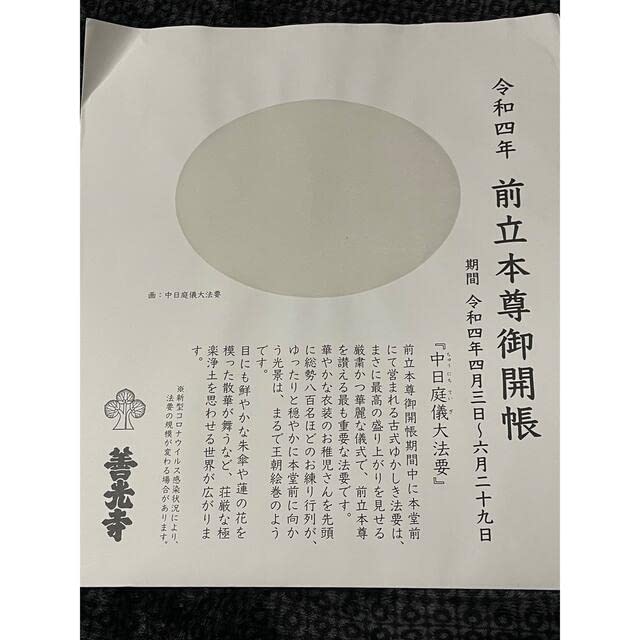 令和四年 前立本尊御開帳
期間 令和四年四月三日～六月二十九日
『中日庭儀大法要』
ちゅうにち ていぎ
前立本尊御開帳期間中に本堂前
にて営まれる古式ゆかしき法要は、
まさに最高の盛り上がりを見せる
厳粛かつ華麗な儀式で、前立本尊
を讃える最も重要な法要です。
華やかな衣装のお稚児さんを先頭
に総勢八百名ほどのお練り行列が、
ゆったりと穏やかに本堂前に向か
う光景は、まるで王朝絵巻のよう
です。
目にも鮮やかな朱傘や蓮の花を
模った散華が舞うなど、荘厳な極
楽浄土を思わせる世界が広がりま
す。
※新型コロナウイルス感染状況により、
法要の規模が変わる場合があります。
画：中日庭儀大法要
善光寺